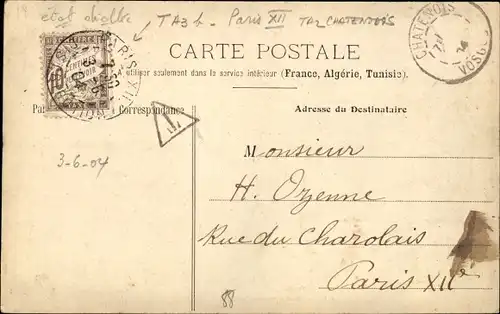 TA3 b - Paris XII TA2 CHATENOIS
CHATENOIS
VOSGES
PARIS XII
10
CENTIMES
CARTE POSTALE
utiliser seulement dans le service intérieur (France, Algérie, Tunisie).
Correspondance
Adresse du Destinataire
T
3-6-04
Monsieur
H. Ozenne
Rue du Charolais
Paris XIIe
88